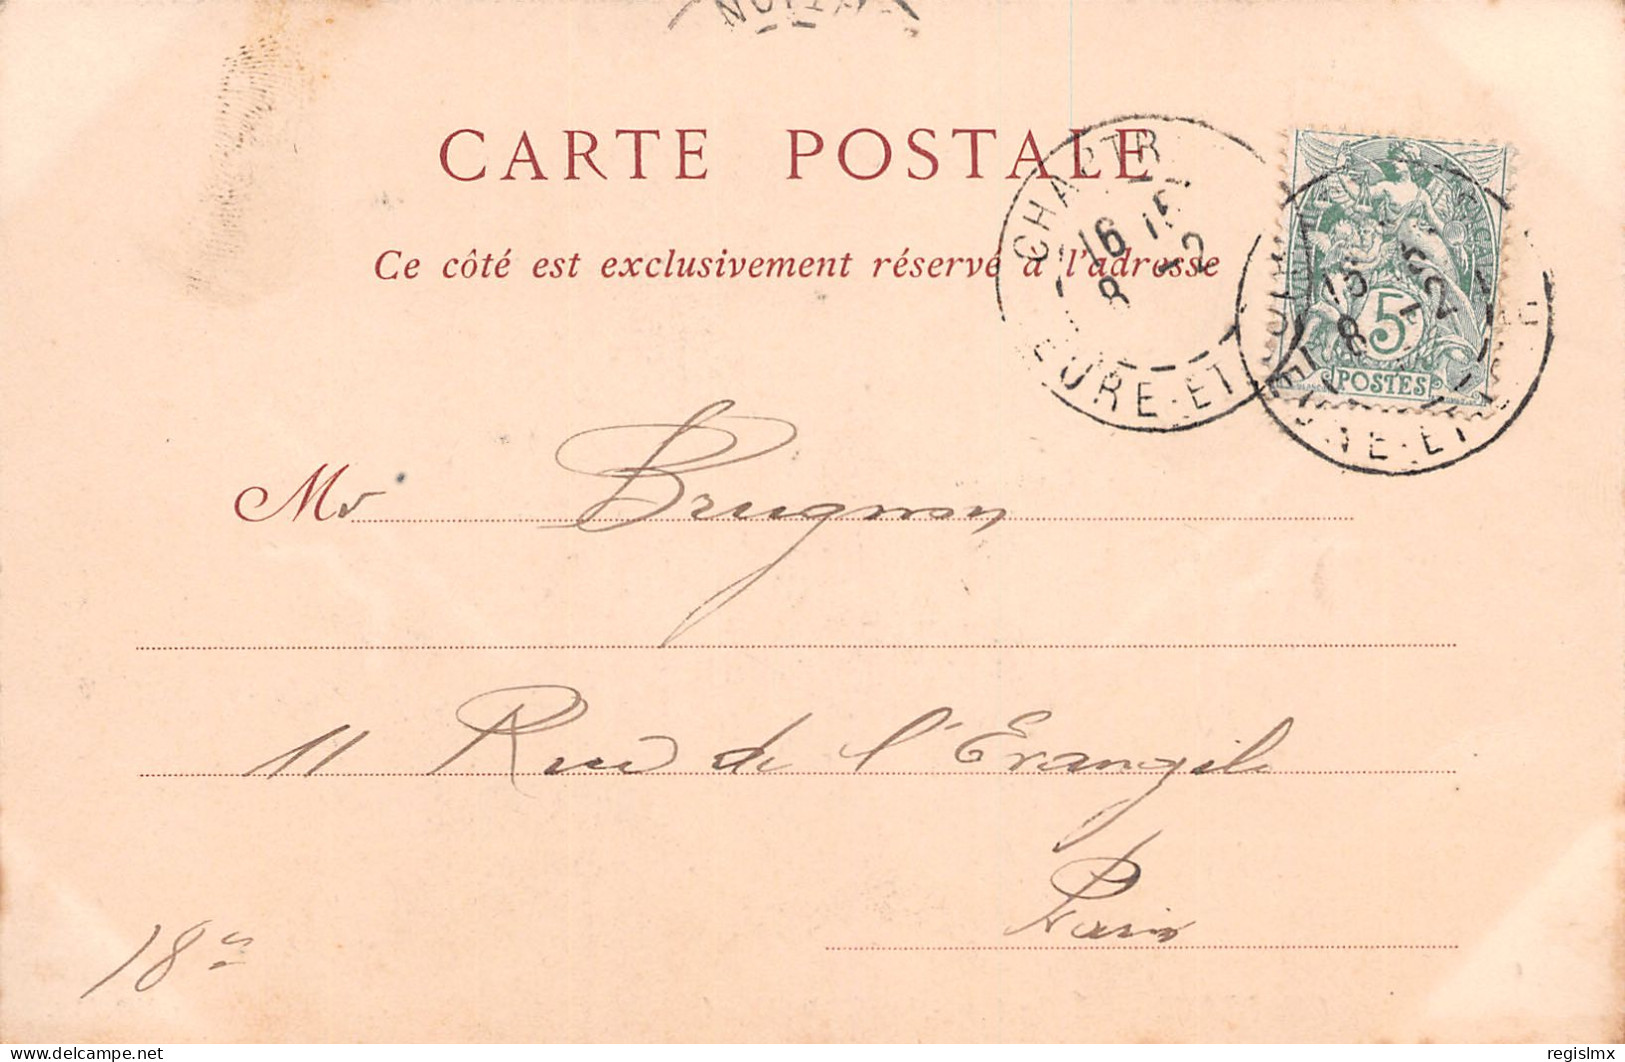 CARTE POSTALE
Ce côté est exclusivement réservé à l'adresse
CHARTR
16
8
EURE-ET
5
POSTES
EURE-ET
Mr Brugnon
11 Rue de l'Evangile
Paris
18es
delcampe.net
regislmx